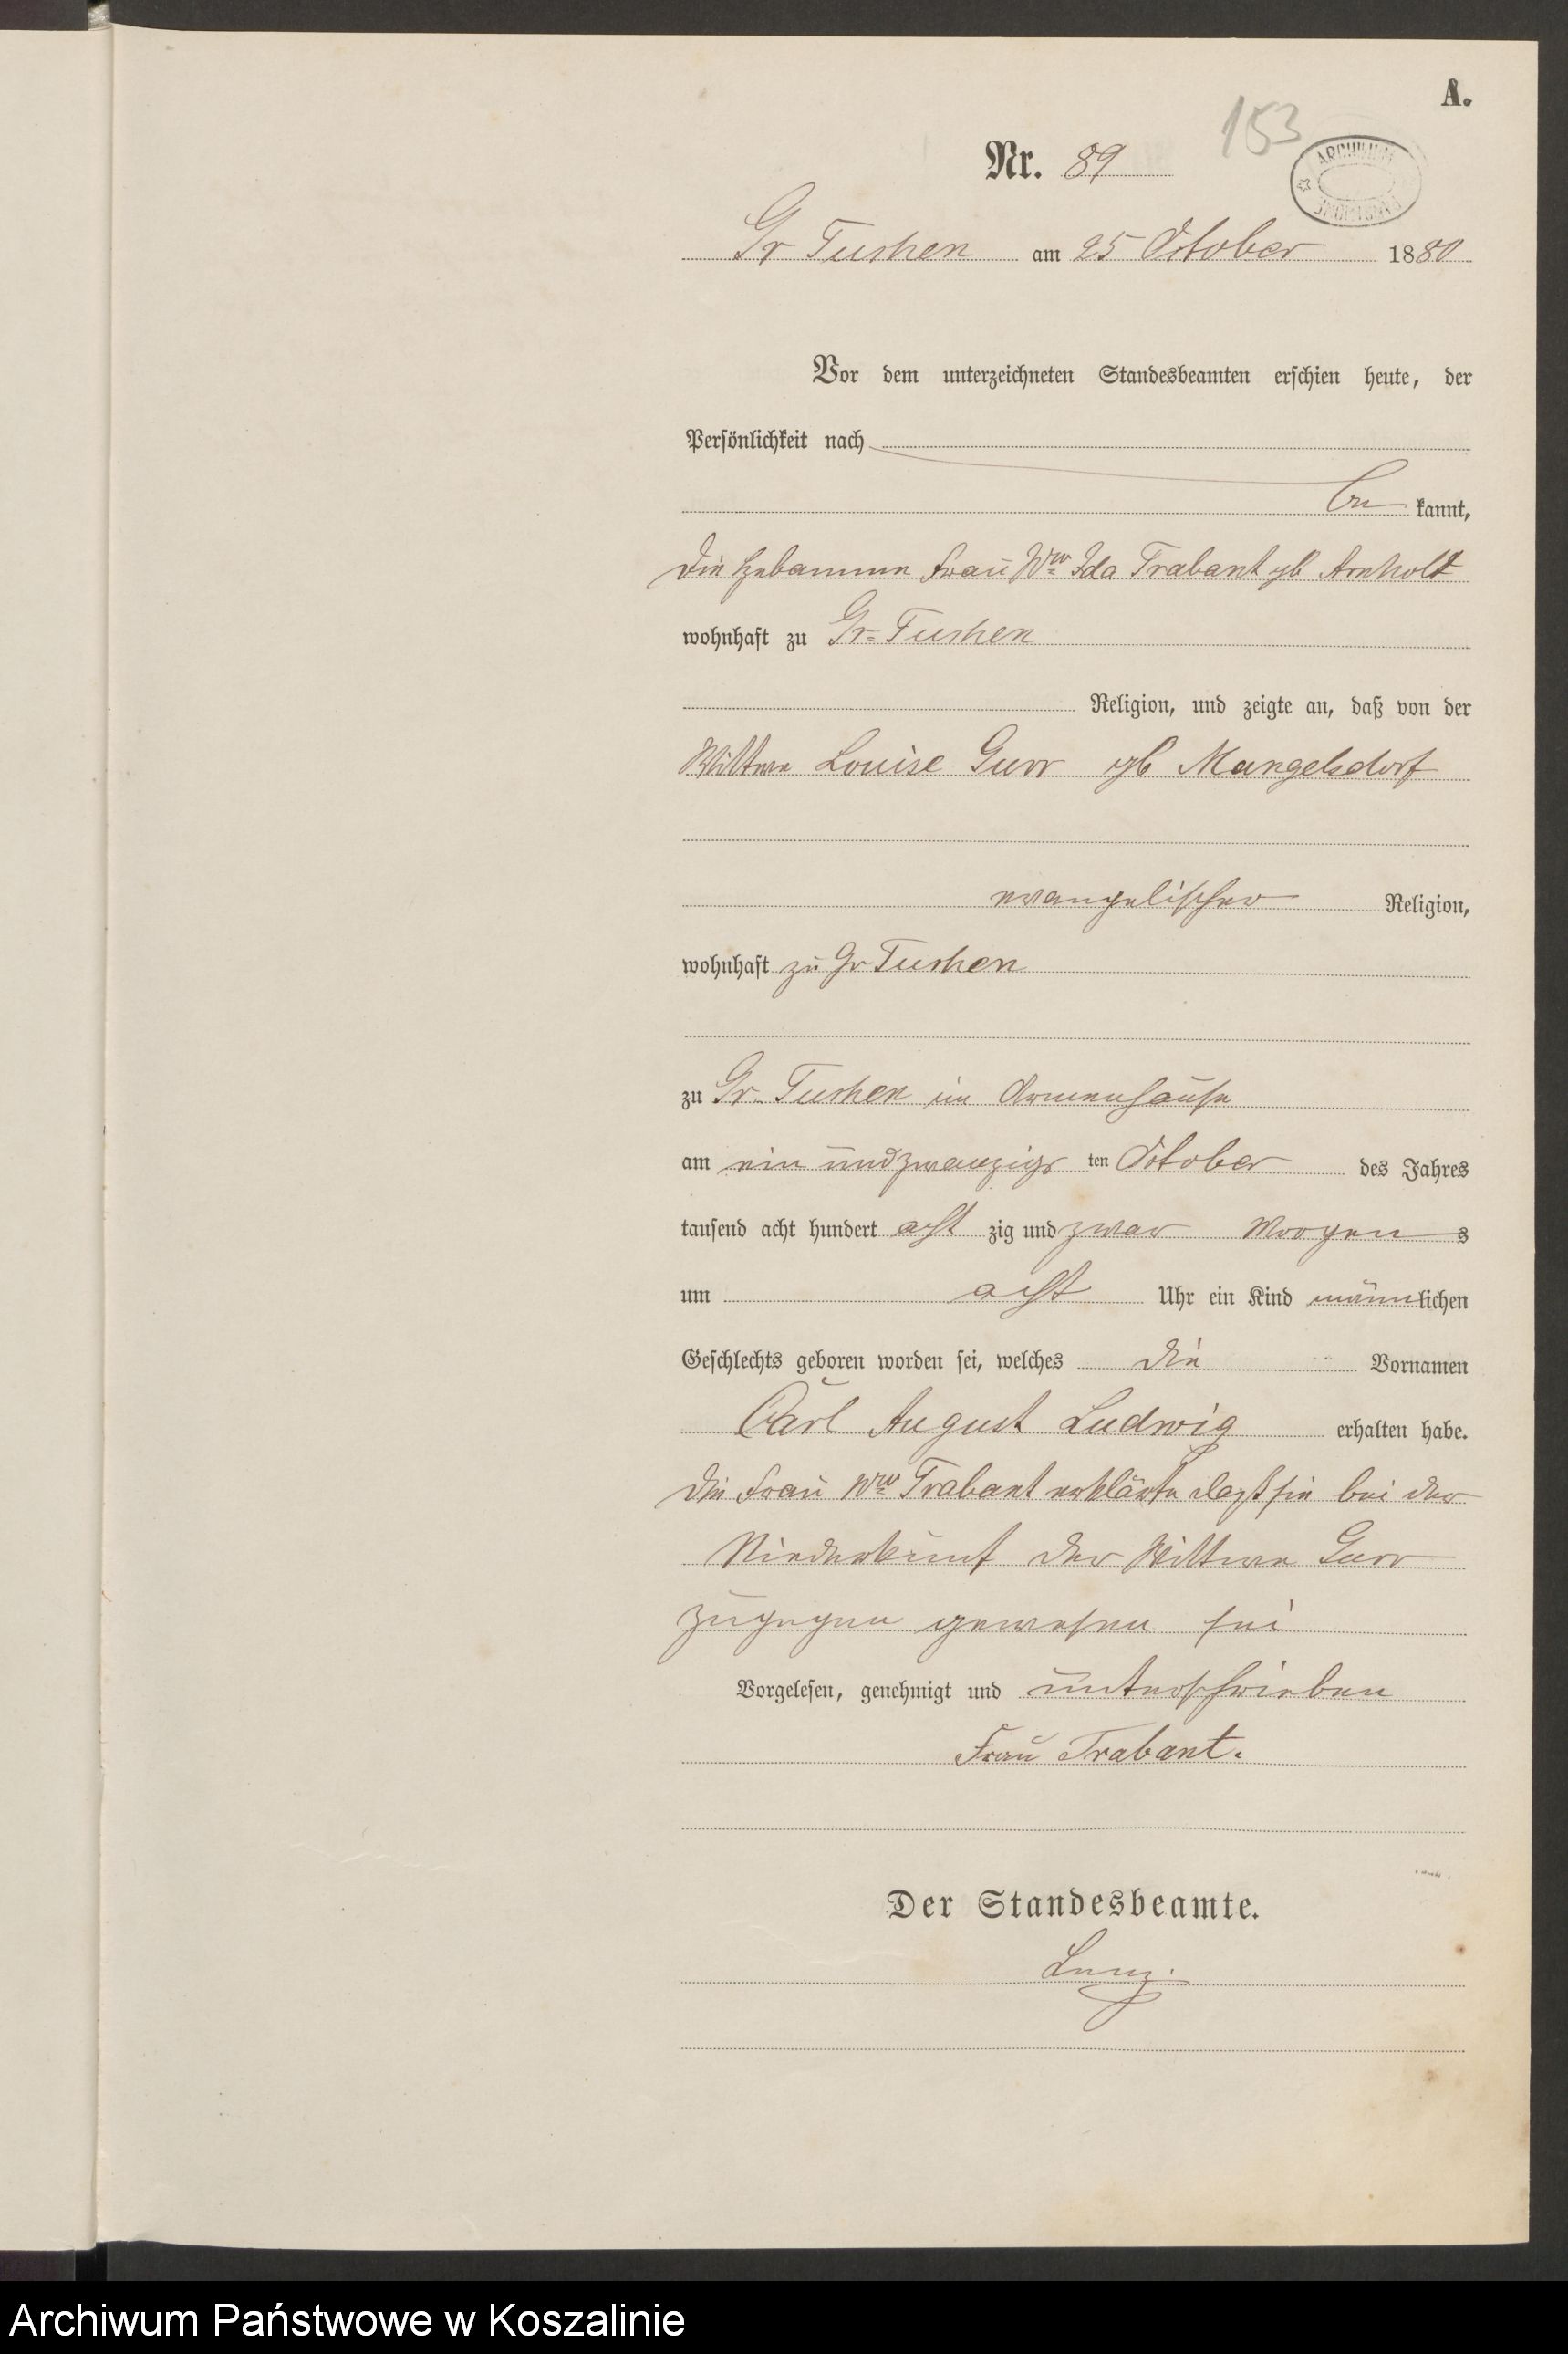 A.
153
Nr. 89
ARCHIWUM
Gr Tuchen am 25 October 1880
Vor dem unterzeichneten Standesbeamten erschien heute, der
Persönlichkeit nach
be kannt,
die Hebamme Frau Wwe Ida Trabant gb Arnholt
wohnhaft zu Gr. Tuchen
Religion, und zeigte an, daß von der
Wittwe Louise Gurr gb Mangelsdorf
evangelischer Religion,
wohnhaft zu Gr Tuchen
zu Gr. Tuchen im Armenhause
am ein und zwanzigs ten October des Jahres
tausend acht hundert acht zig und zwar Morgen s
um acht Uhr ein Kind männlichen
Geschlechts geboren worden sei, welches die Vornamen
Carl August Ludwig erhalten habe.
Die Frau Wwe Trabant erklärte daß sie bei der
Niederkunft der Wittwe Gurr
zugegen gewesen sei
Vorgelesen, genehmigt und unterschrieben
Frau Trabant.
Der Standesbeamte.
Archiwum Państwowe w Koszalinie